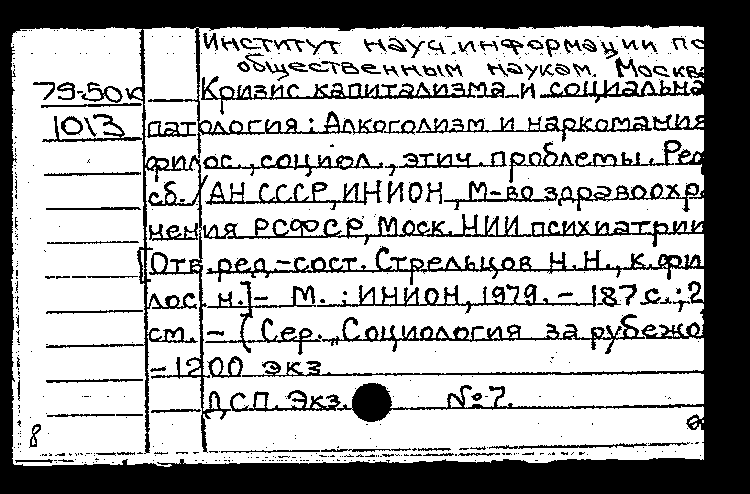 Институт науч. информации по
общественным наукам. Москва
79-50к Кризис капитализма и социальна
1013 патология: Алкоголизм и наркомания
филос., социол., этич. проблемы. Реф
сб. / АН СССР, ИНИОН, М-во здравоохра
нения РСФСР, Моск. НИИ психиатрии
[Отв. ред.-сост. Стрельцов Н.Н., к. фи
лос. н.] - М. : ИНИОН, 1979. - 187 с.; 2
см. - (Сер. „Социология за рубежо
- 1200 экз.
ДСП. Экз. № 7.
8